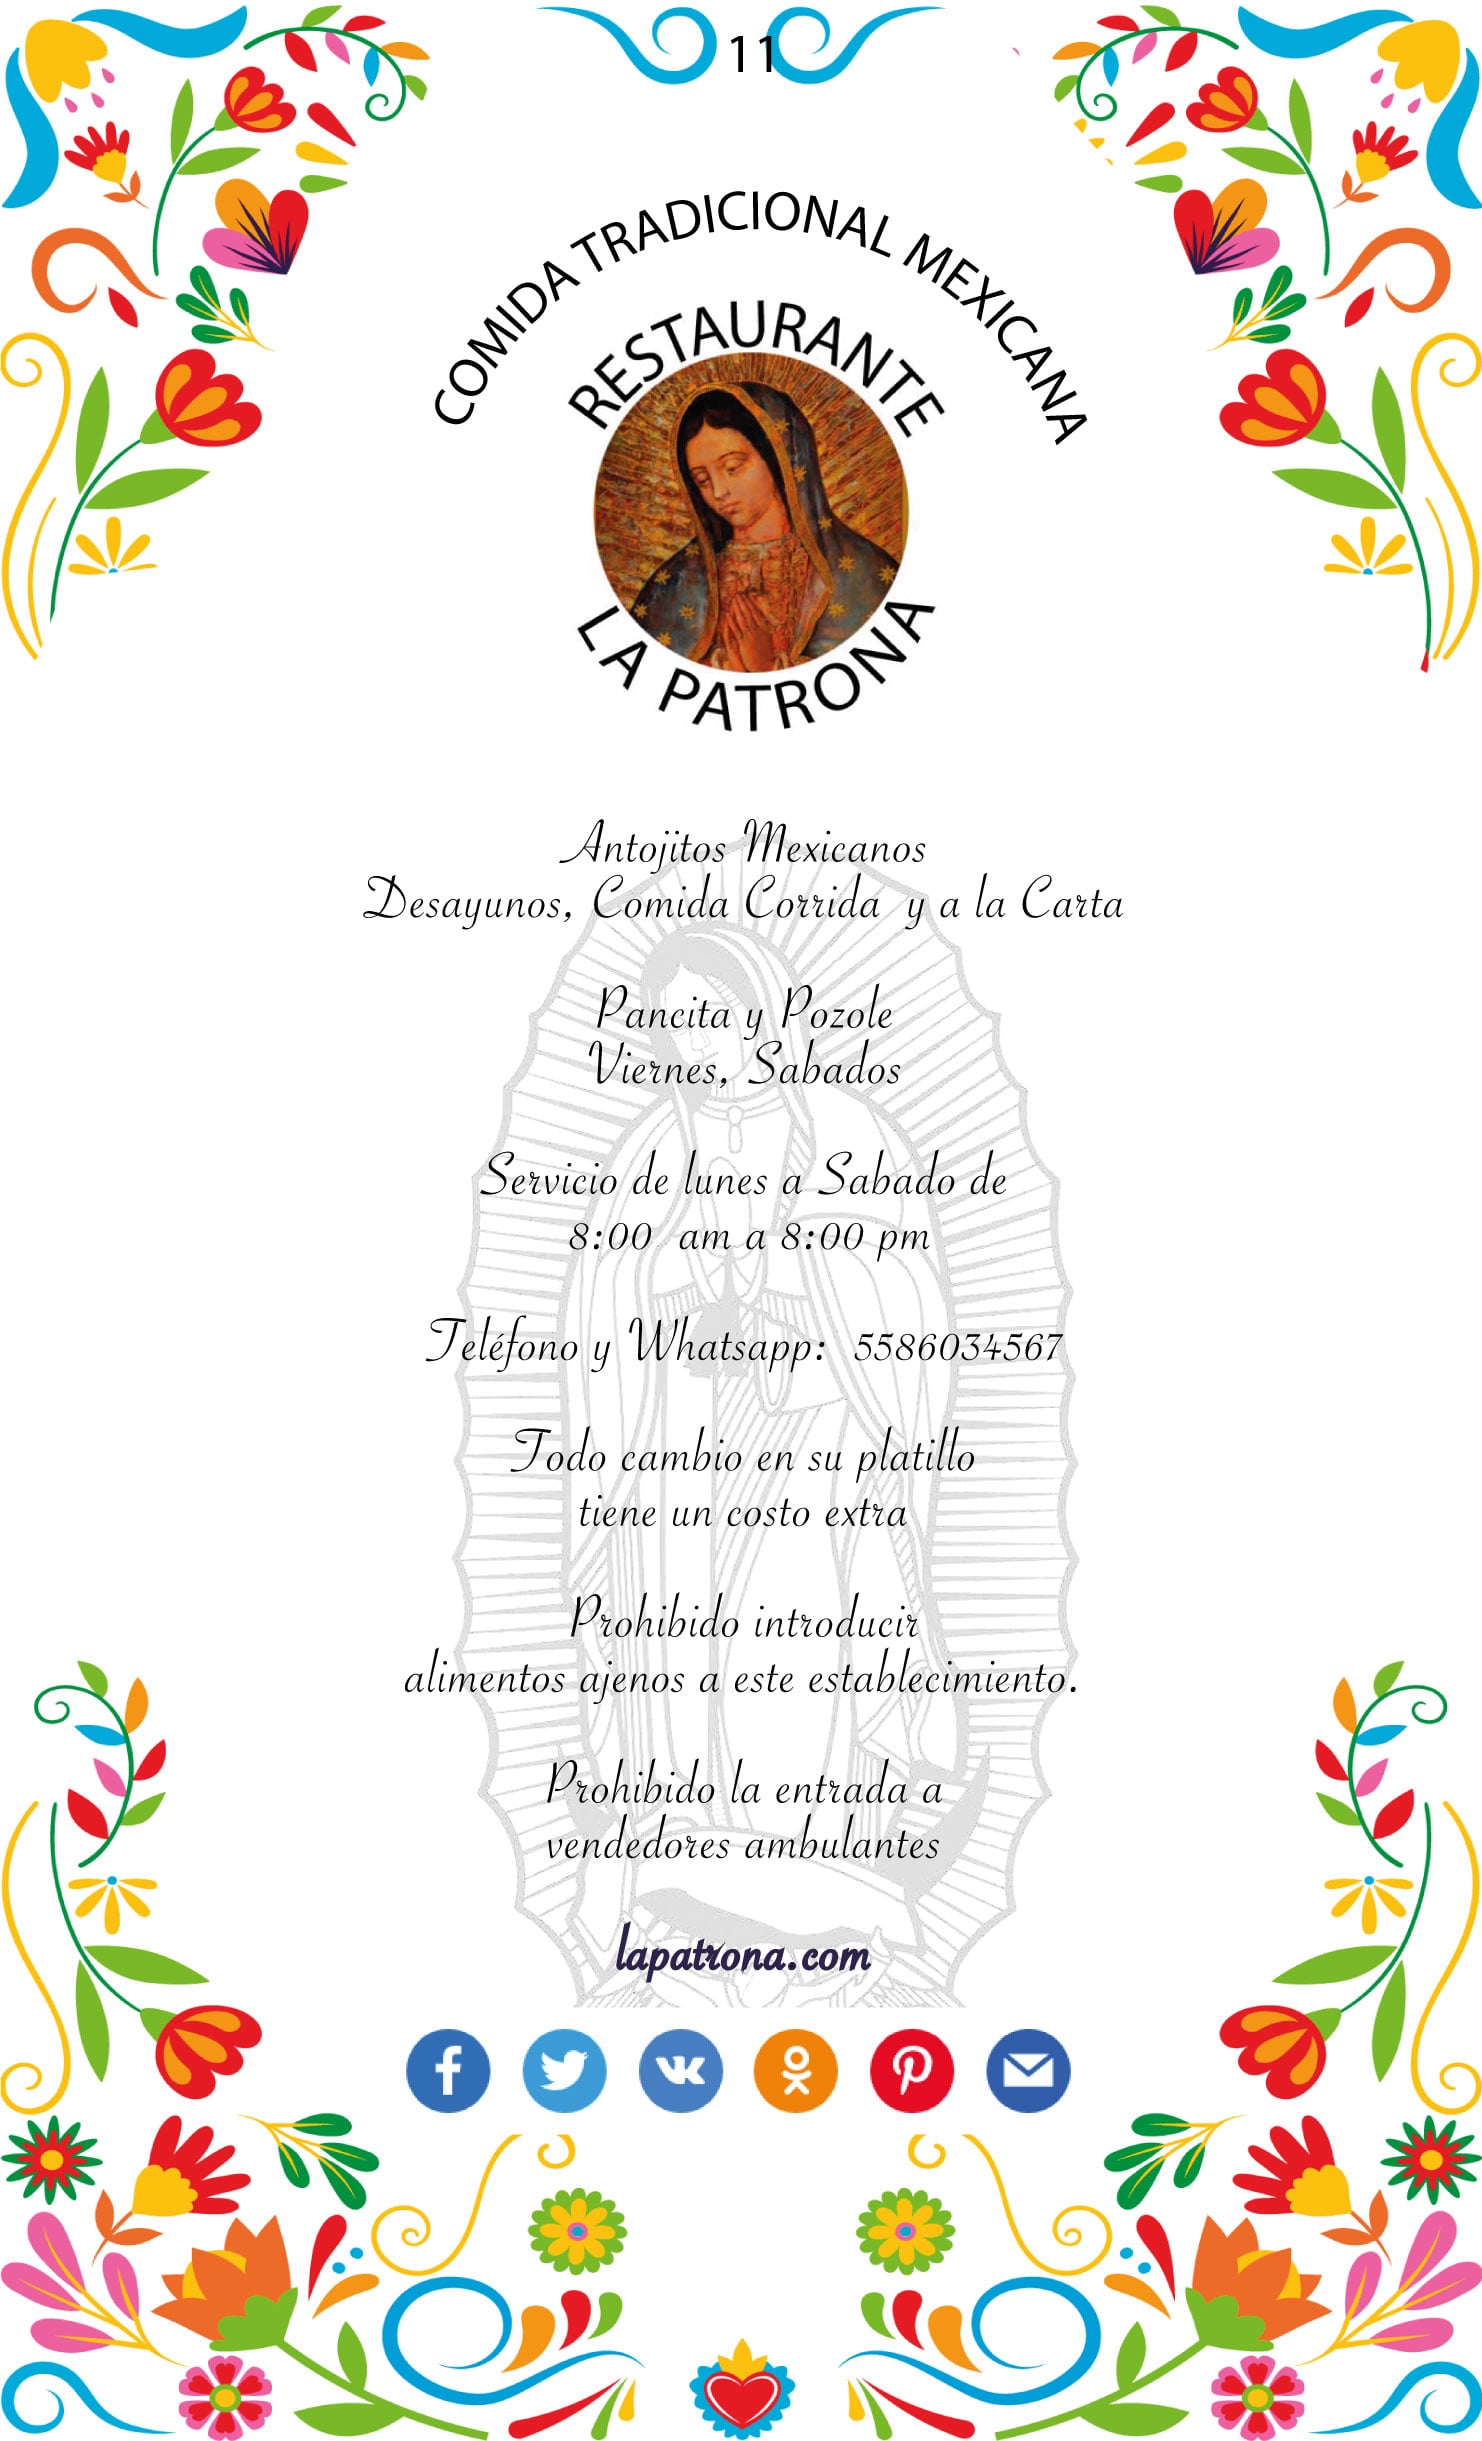 11
COMIDA TRADICIONAL MEXICANA
RESTAURANTE
LA PATRONA
Antojitos Mexicanos
Desayunos, Comida Corrida y a la Carta
Pancita y Pozole
Viernes, Sabados
Servicio de lunes a Sabado de
8:00 am a 8:00 pm
Teléfono y Whatsapp: 5586034567
Todo cambio en su platillo
tiene un costo extra
Prohibido introducir
alimentos ajenos a este establecimiento.
Prohibido la entrada a
vendedores ambulantes
lapatrona.com